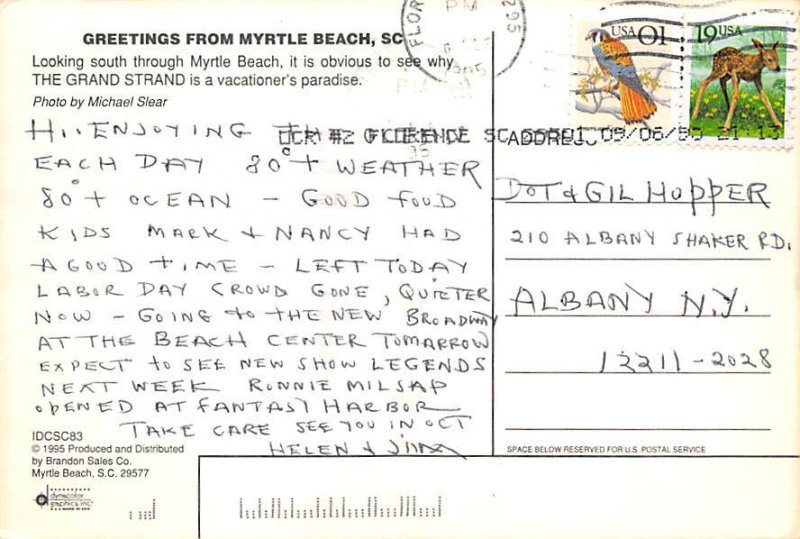 GREETINGS FROM MYRTLE BEACH, SC
Looking south through Myrtle Beach, it is obvious to see why
THE GRAND STRAND is a vacationer's paradise.
Photo by Michael Slear
PM
1995
USA 01
19 USA
FLORENCE SC 09/06/95 21:13
HI.. ENJOYING THE
EACH DAY 80°+ WEATHER
80°+ OCEAN - GOOD FOOD
KIDS MARK + NANCY HAD
A GOOD TIME - LEFT TODAY
LABOR DAY CROWD GONE, QUIETER
NOW - GOING TO THE NEW BROADWAY
AT THE BEACH CENTER TOMORROW
EXPECT to SEE NEW SHOW LEGENDS
NEXT WEEK RONNIE MILSAP
OPENED AT FANTASY HARBOR
TAKE CARE SEE YOU IN OCT
HELEN + JIM
ADDRESS
DOT & GIL HOPPER
210 ALBANY SHAKER RD.
ALBANY N.Y.
12211-2028
IDCSC83
© 1995 Produced and Distributed
by Brandon Sales Co.
Myrtle Beach, S.C. 29577
dynacolor
graphics inc.
SPACE BELOW RESERVED FOR U.S. POSTAL SERVICE